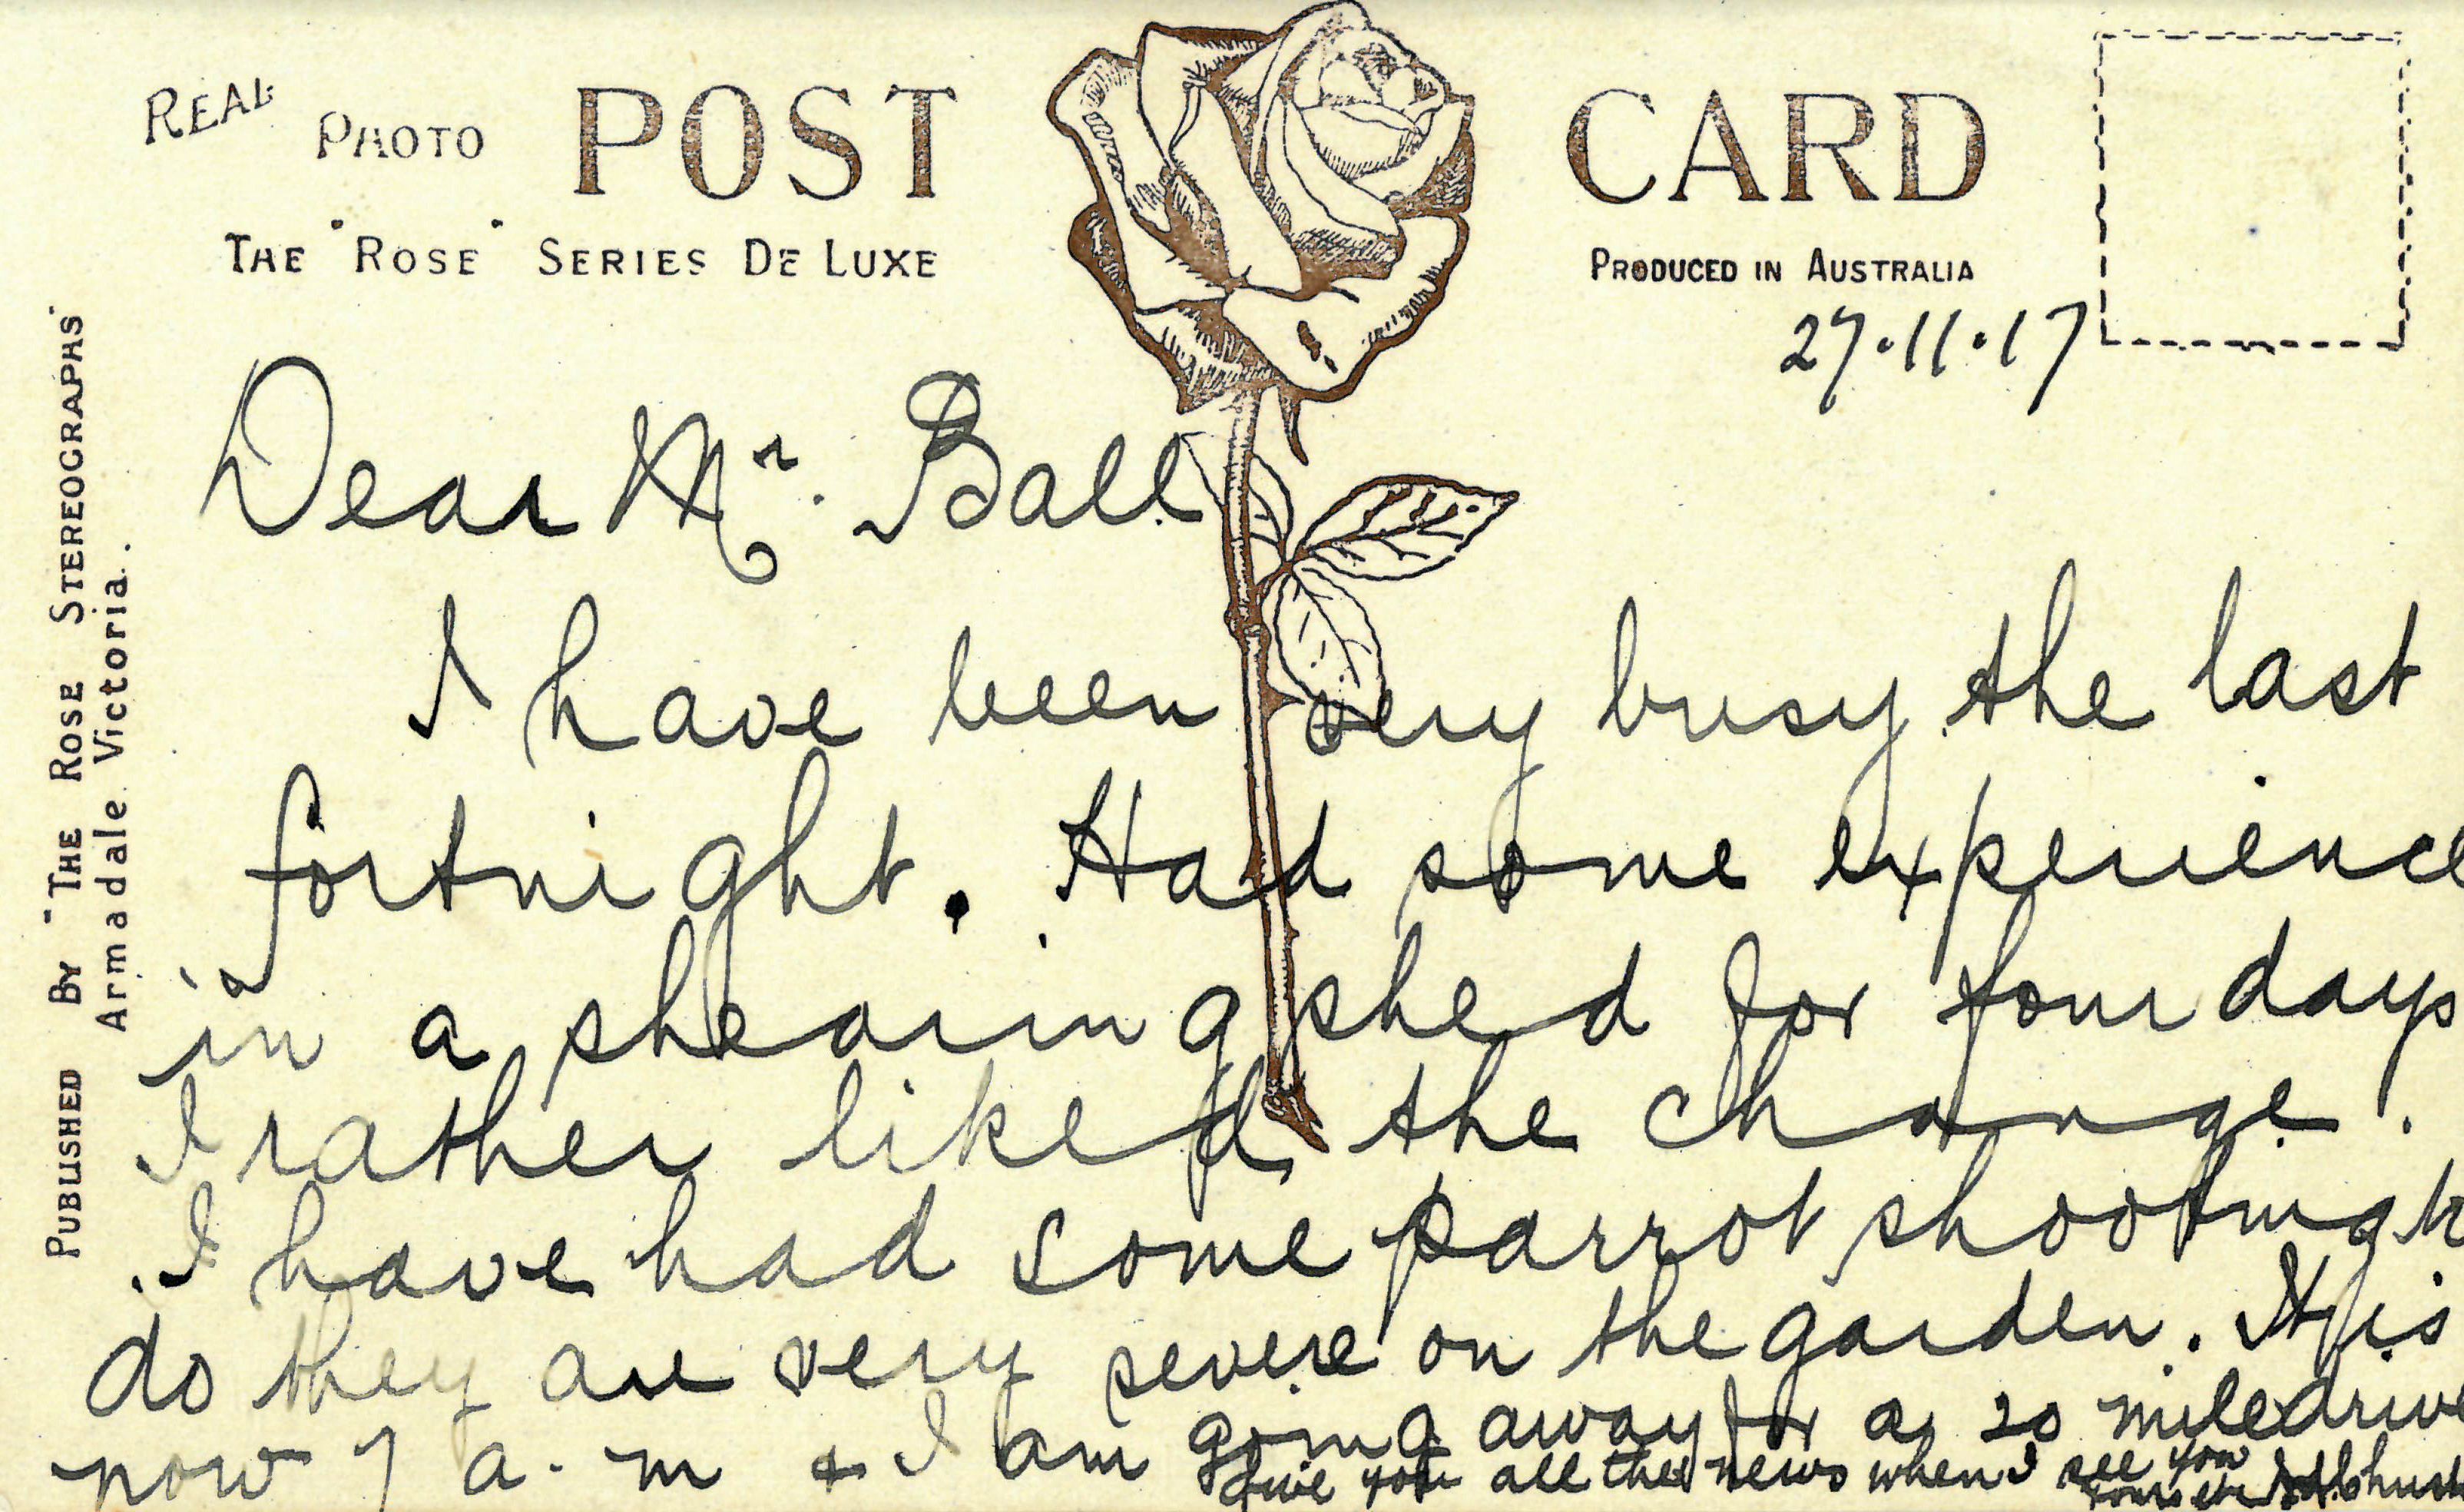 REAL PHOTO POST CARD
THE "ROSE" SERIES DE LUXE
PRODUCED IN AUSTRALIA
PUBLISHED BY "THE ROSE STEREOGRAPHS"
Armadale Victoria.
27.11.17
Dear Mr. Ball
I have been very busy the last
fortnight. Had some experience
in a shearing shed for four days
I rather liked the change.
I have had some parrot shooting to
do they are very severe on the garden. It is
now 7 a.m & I am going away for a 20 mile drive
Give you all the news when I see you